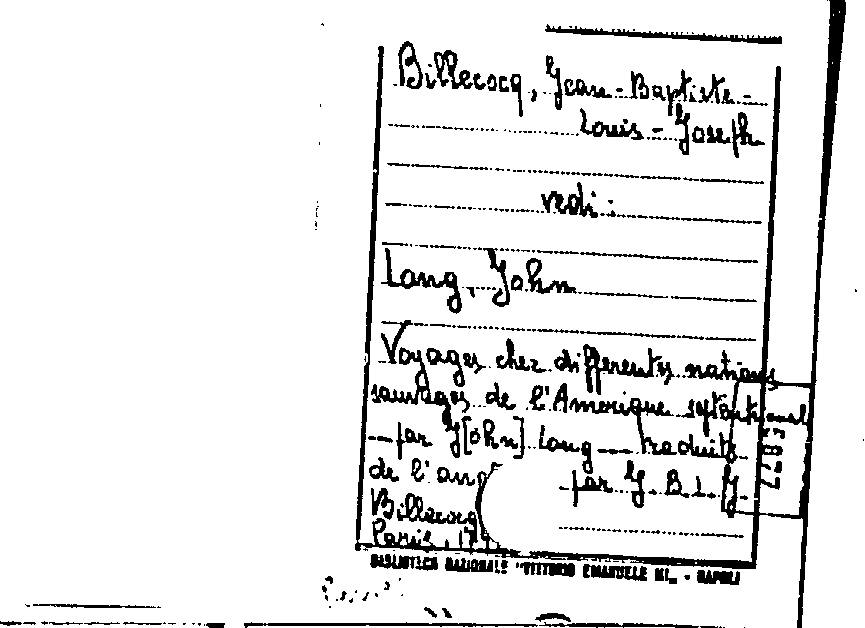 Billecocq, Jean-Baptiste-
Louis-Joseph
vedi:
Lang, John
Voyages chez differentes nations
sauvages de l'Amerique septentrional
---par J[ohn] Long --- traduits
de l'ang par J.B.L.J.
Billecocq
Paris, 179
BIBLIOTECA NAZIONALE "VITTORIO EMANUELE III„ - NAPOLI